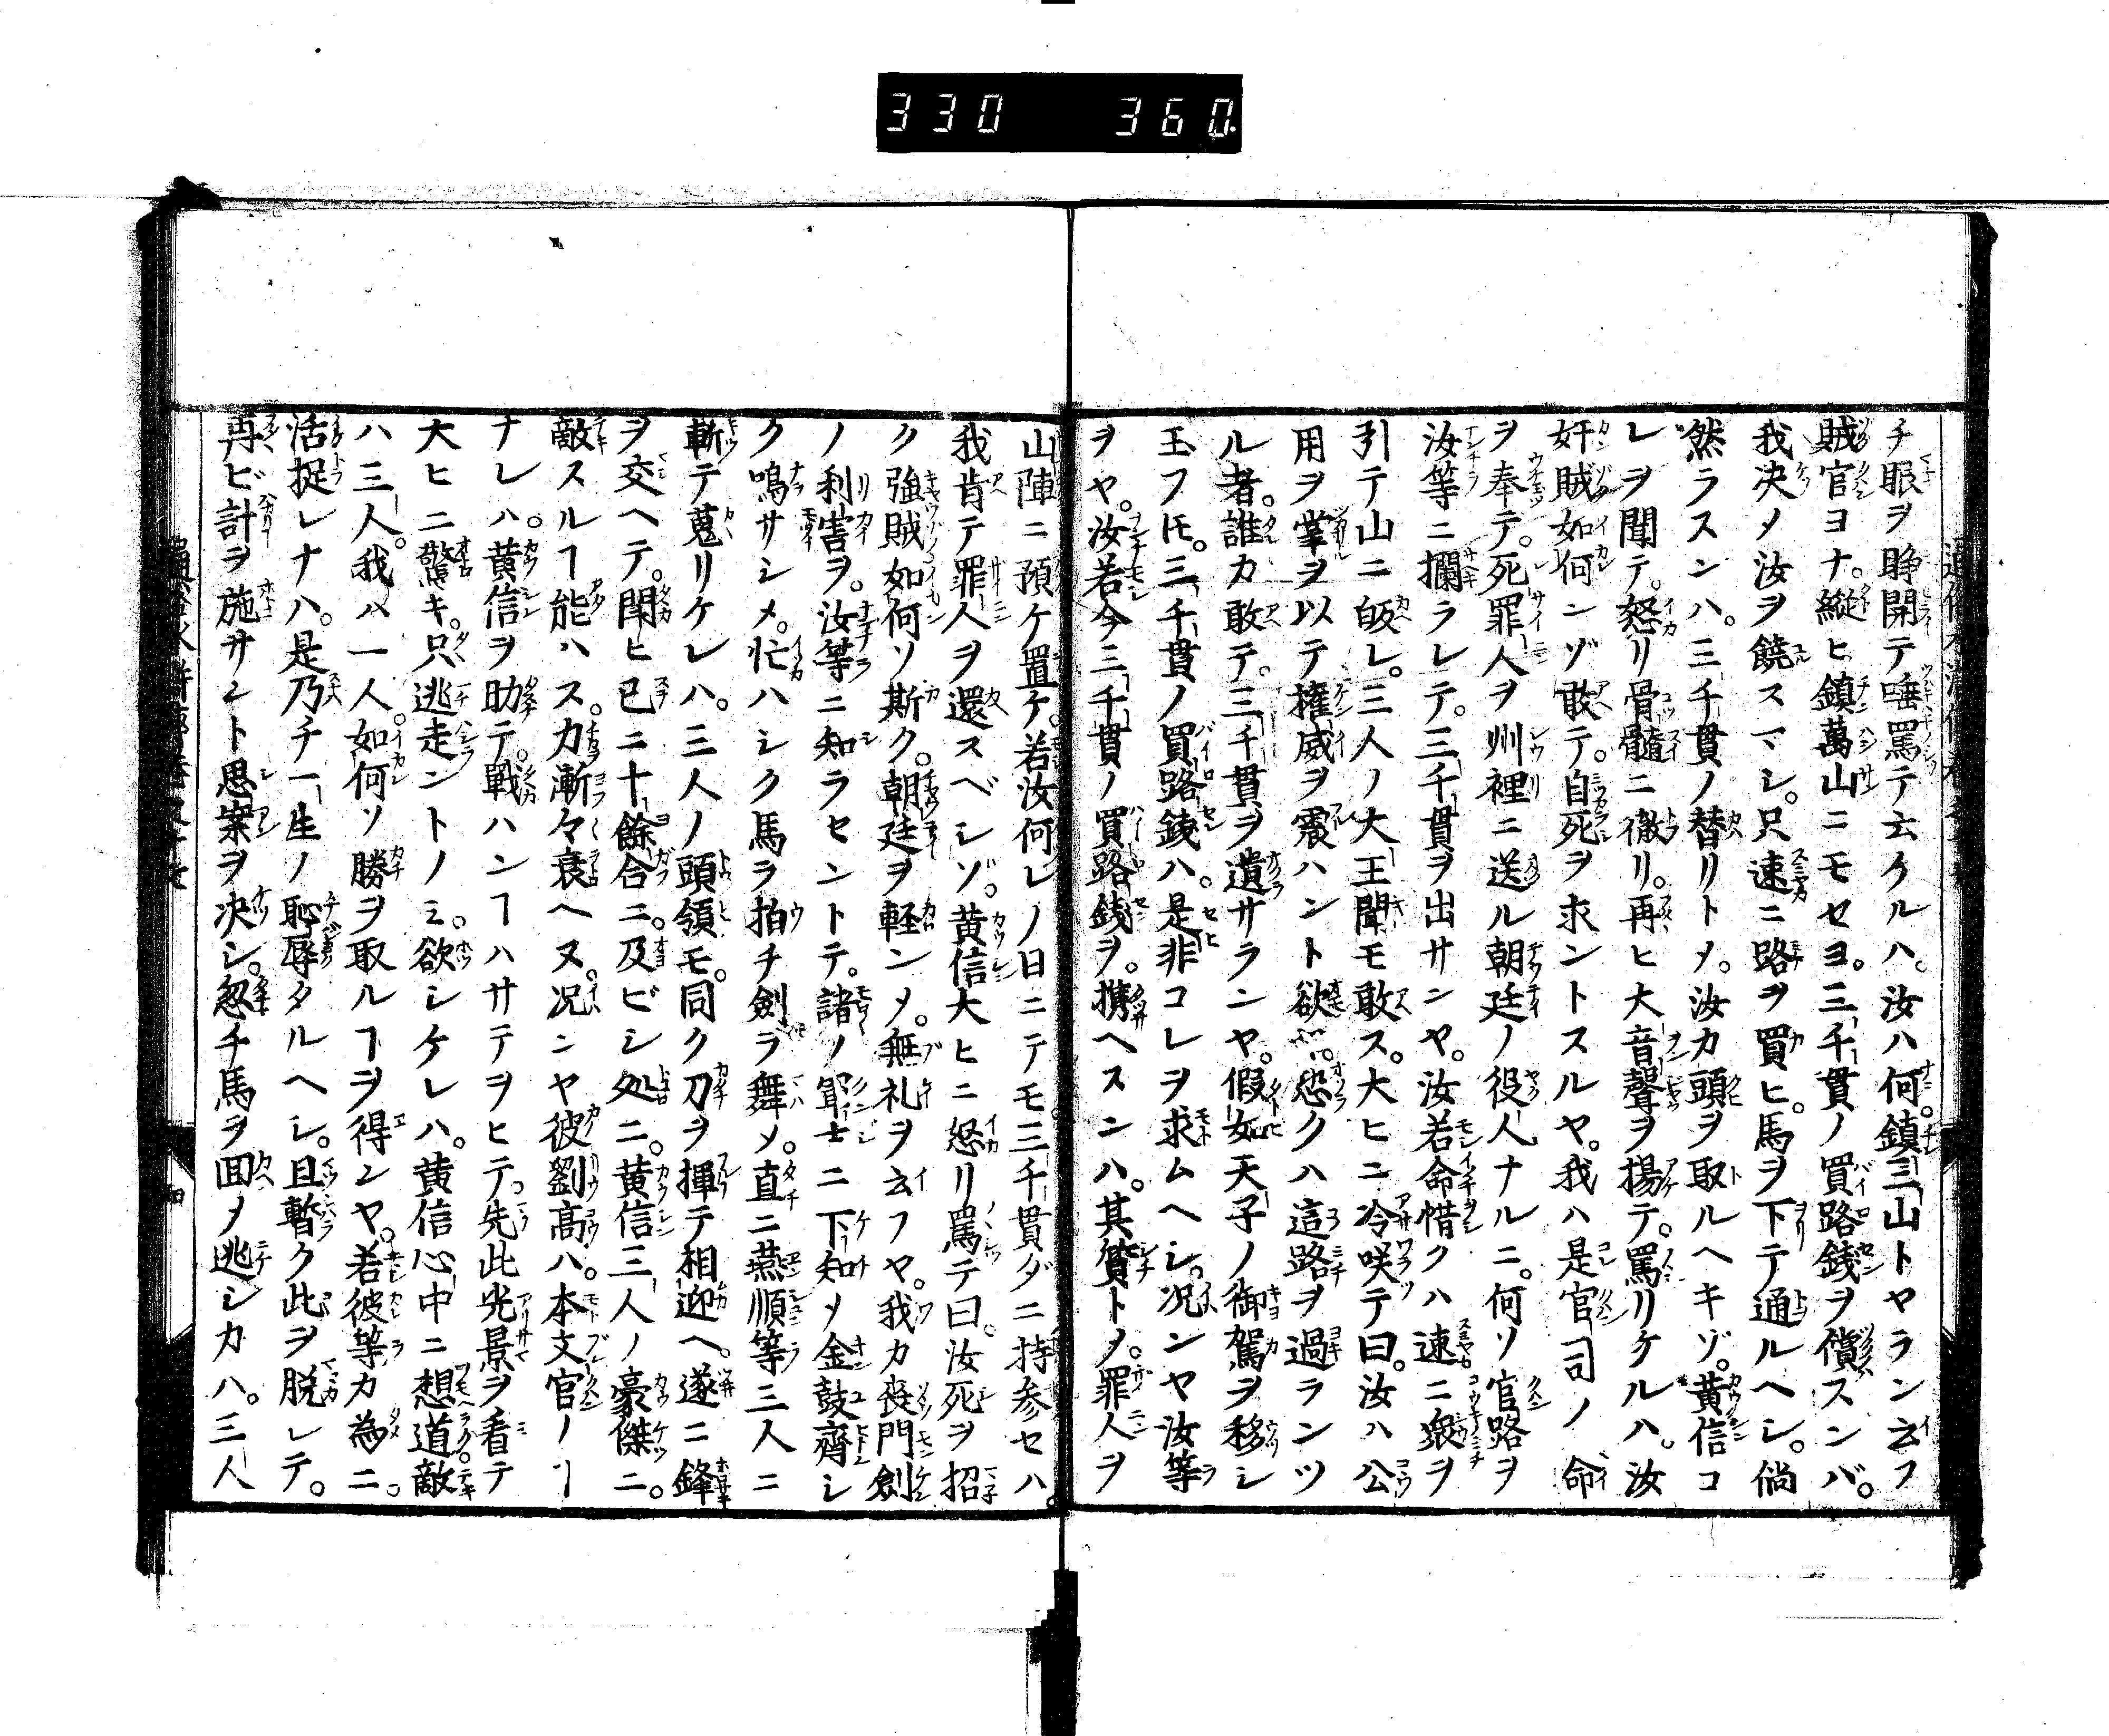 330 360
チ眼ヲ睁開テ唾罵テ云ケルハ。汝ハ何。鎮三山トヤラン云フ
賊官ヨナ。縦ヒ鎮萬山ニモセヨ。三千貫ノ買路錢ヲ償スンバ。
我决メ汝ヲ饒スマシ。只速ニ路ヲ買ヒ。馬ヲ下テ通ルヘシ。倘
然ラスンハ。三千貫ノ替リトメ。汝カ頭ヲ取ルヘキゾ。黄信コ
レヲ聞テ。怒リ骨髓ニ徹リ。再ヒ大音聲ヲ揚テ。罵リケルハ。汝
奸賊如何ンゾ敢テ。自死ヲ求ントスルヤ。我ハ是官司ノ命
ヲ奉テ。死罪人ヲ州裡ニ送ル朝廷ノ役人ナルニ。何ソ官路ヲ
汝等ニ攔ラレテ。三千貫ヲ出サンヤ。汝若命惜クハ速ニ衆ヲ
引テ山ニ皈レ。三人ノ大王聞モ敢ス。大ヒニ冷咲テ曰。汝ハ公
用ヲ掌ヲ以テ權威ヲ震ハント欲ス。恐クハ這路ヲ過ランツ
ル者。誰カ敢テ。三千貫ヲ遺サランヤ。假如天子ノ御駕ヲ移シ
玉フ𪜈。三千貫ノ買路錢ハ。是非コレヲ求ムヘシ。况ンヤ汝等
ヲヤ。汝若今三千貫ノ買路錢ヲ。携ヘスンハ。其質トメ。罪人ヲ
山陣ニ預ケ置ケ。若汝何レノ日ニテモ三千貫ダニ持参セハ。
我肯テ罪人ヲ還スベシゾ。黄信大ヒニ怒リ罵テ曰。汝死ヲ招
ク強賊如何ソ斯ク。朝廷ヲ軽ンメ。無礼ヲ云フヤ。我カ喪門劍
ノ利害ヲ。汝等ニ知ラセントテ。諸ノ軍士ニ下知メ金鼓齊シ
ク鳴サシメ。忙ハシク馬ラ拍チ劍ラ舞メ。直ニ燕順等三人ニ
斬テ蒐リケレハ。三人ノ頭領モ。同ク刀ヲ揮テ相迎ヘ。遂ニ鋒
ヲ交ヘテ。鬪ヒ已ニ十餘合ニ。及ビシ処ニ。黄信三人ノ豪傑ニ。
敵スルヿ能ハス。力漸々衰ヘヌ。况ンヤ彼劉高ハ。本文官ノヿ
ナレハ。黄信ヲ助テ。戰ハンヿハサテヲヒテ。先此光景ヲ看テ
大ヒニ驚キ。只逃走ントノミ。欲シケレハ。黄信心中ニ想道敵
ハ三人。我ハ一人。如何ソ勝ヲ取ルヿヲ得ンヤ。若彼等カ為ニ。
活捉レナハ。是乃チ一生ノ恥辱タルヘシ。且暫ク此ヲ脱レテ。
再ビ計ヲ施サント思案ヲ决シ。忽チ馬ヲ囬メ逃シカハ。三人